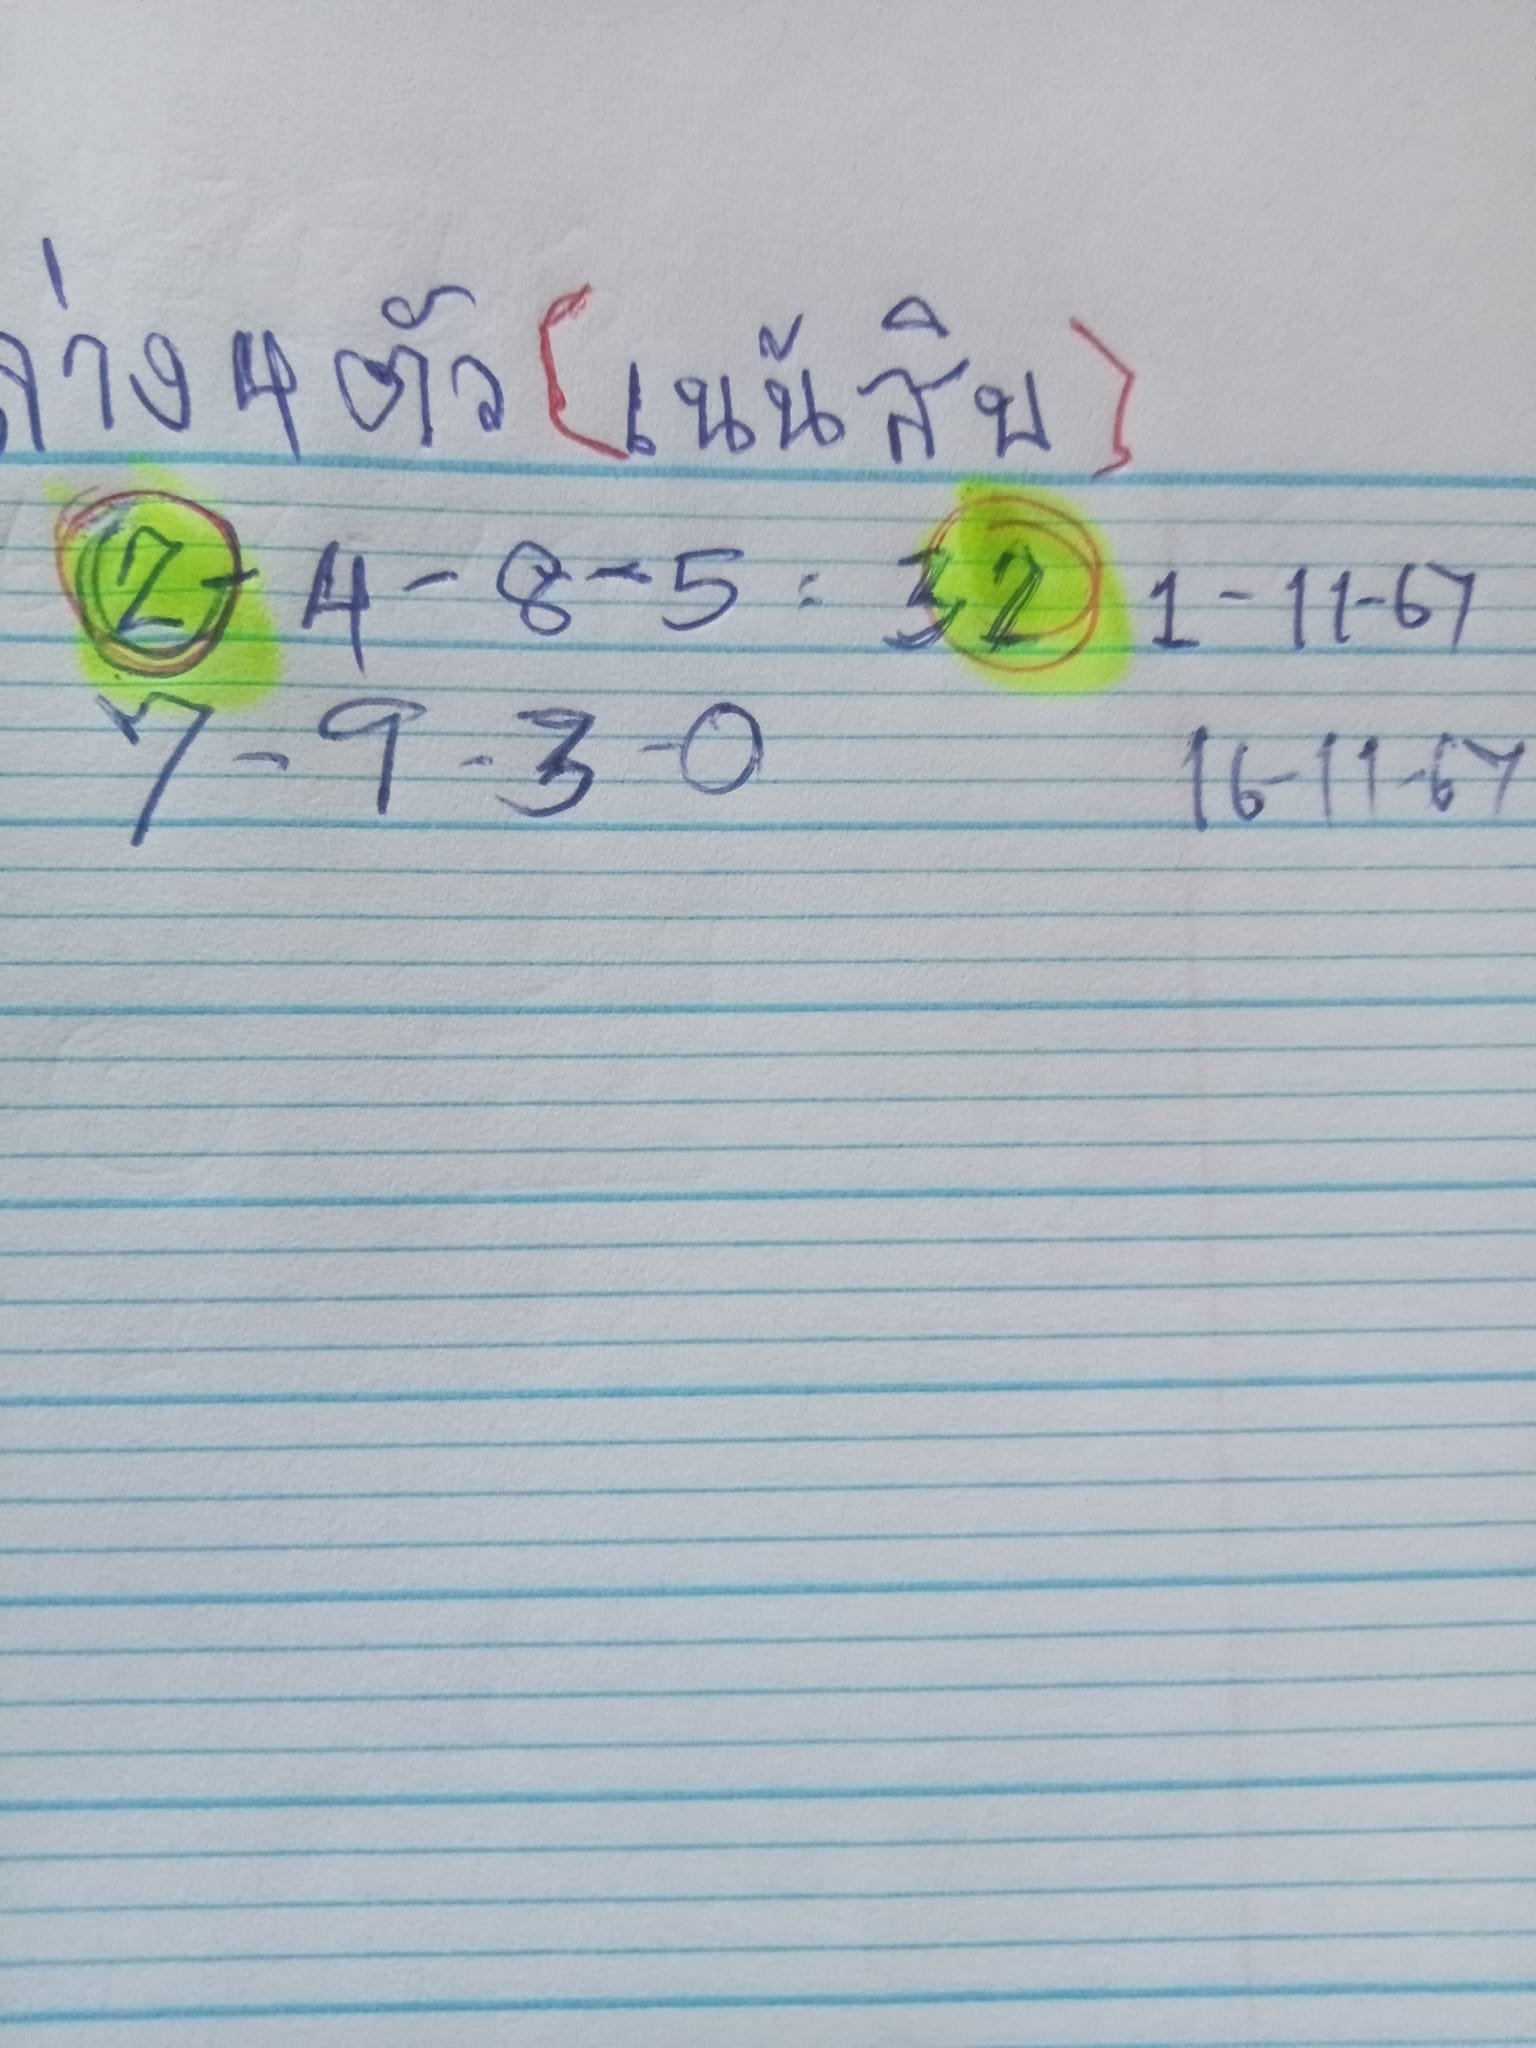 ล่าง 4 ตัว (เน้นสิบ)
2-4-8-5 = 32 1-11-67
7-9-3-0 16-11-67